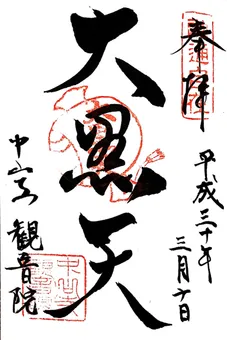 奉拝
平成三十年
三月十日
大黒天
中山寺
観音院